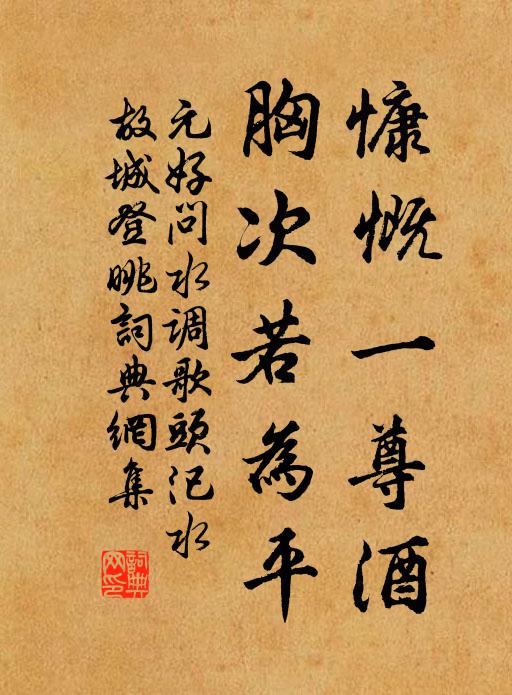 慷慨一尊酒
胸次若為平
元好问水调歌頭汜水
故城登眺詞典網集
詞典网印